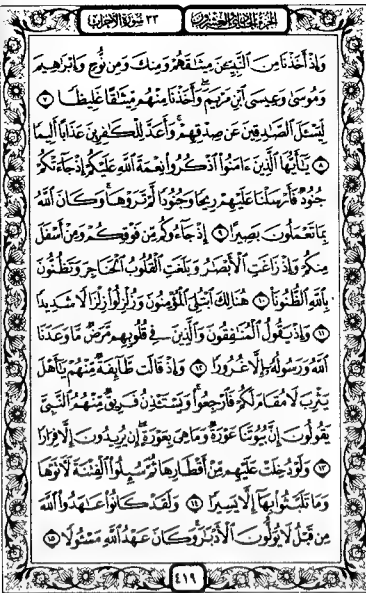 الجزء الحادي والعشرون ٣٣ سورة الأحزاب
وَإِذْ أَخَذْنَا مِنَ ٱلنَّبِيِّـۧنَ مِيثَـٰقَهُمْ وَمِنكَ وَمِن نُّوحٍ وَإِبْرَٰهِيمَ
وَمُوسَىٰ وَعِيسَى ٱبْنِ مَرْيَمَ ۖ وَأَخَذْنَا مِنْهُم مِّيثَـٰقًا غَلِيظًا ٧
لِّيَسْـَٔلَ ٱلصَّـٰدِقِينَ عَن صِدْقِهِمْ ۚ وَأَعَدَّ لِلْكَـٰفِرِينَ عَذَابًا أَلِيمًا
٨ يَـٰٓأَيُّهَا ٱلَّذِينَ ءَامَنُوا۟ ٱذْكُرُوا۟ نِعْمَةَ ٱللَّهِ عَلَيْكُمْ إِذْ جَآءَتْكُمْ
جُنُودٌ فَأَرْسَلْنَا عَلَيْهِمْ رِيحًا وَجُنُودًا لَّمْ تَرَوْهَا ۚ وَكَانَ ٱللَّهُ
بِمَا تَعْمَلُونَ بَصِيرًا ٩ إِذْ جَآءُوكُم مِّن فَوْقِكُمْ وَمِنْ أَسْفَلَ
مِنكُمْ وَإِذْ زَاغَتِ ٱلْأَبْصَـٰرُ وَبَلَغَتِ ٱلْقُلُوبُ ٱلْحَنَاجِرَ وَتَظُنُّونَ
بِٱللَّهِ ٱلظُّنُونَا۠ ١٠ هُنَالِكَ ٱبْتُلِىَ ٱلْمُؤْمِنُونَ وَزُلْزِلُوا۟ زِلْزَالًا شَدِيدًا
١١ وَإِذْ يَقُولُ ٱلْمُنَـٰفِقُونَ وَٱلَّذِينَ فِى قُلُوبِهِم مَّرَضٌ مَّا وَعَدَنَا
ٱللَّهُ وَرَسُولُهُۥٓ إِلَّا غُرُورًا ١٢ وَإِذْ قَالَت طَّآئِفَةٌ مِّنْهُمْ يَـٰٓأَهْلَ
يَثْرِبَ لَا مُقَامَ لَكُمْ فَٱرْجِعُوا۟ ۚ وَيَسْتَـْٔذِنُ فَرِيقٌ مِّنْهُمُ ٱلنَّبِىَّ
يَقُولُونَ إِنَّ بُيُوتَنَا عَوْرَةٌ وَمَا هِىَ بِعَوْرَةٍ ۖ إِن يُرِيدُونَ إِلَّا فِرَارًا
١٣ وَلَوْ دُخِلَتْ عَلَيْهِم مِّنْ أَقْطَارِهَا ثُمَّ سُئِلُوا۟ ٱلْفِتْنَةَ لَـَٔاتَوْهَا
وَمَا تَلَبَّثُوا۟ بِهَآ إِلَّا يَسِيرًا ١٤ وَلَقَدْ كَانُوا۟ عَـٰهَدُوا۟ ٱللَّهَ
مِن قَبْلُ لَا يُوَلُّونَ ٱلْأَدْبَـٰرَ ۚ وَكَانَ عَهْدُ ٱللَّهِ مَسْـُٔولًا ١٥
٤١٩